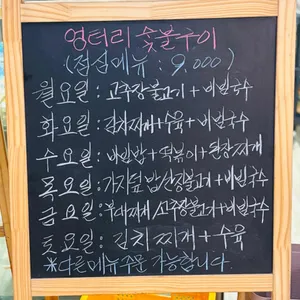 엉터리 숯불구이
(점심메뉴 : 9,000)
월요일: 고추장불고기 + 비빔국수
화요일: 김치찌개 + 수육 + 비빔국수
수요일: 비빔밥 + 떡볶이 + 된장찌개
목요일: 가지덮밥/간장불고기 + 비빔국수
금요일: 부대찌개/고추장불고기 + 비빔국수
토요일: 김치찌개 + 수육
*다른메뉴주문 가능합니다.